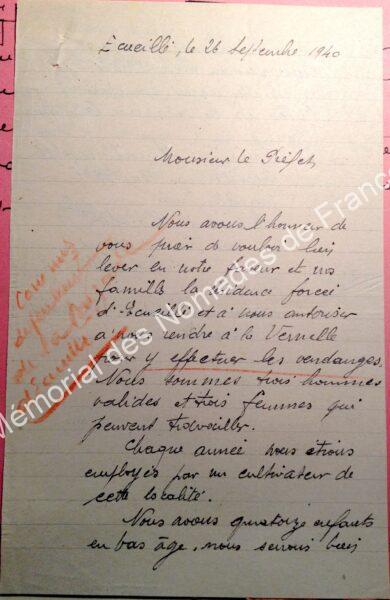 Ecueillé, le 26 Septembre 1940
Monsieur le Préfet
Nous avons l'honneur de
vous prier de vouloir bien
lever en notre faveur et nos
familles la résidence forcée
d'Ecueillé et à nous autoriser
à nous rendre à la Vernelle
pour y effectuer les vendanges.
Nous sommes trois hommes
valides et trois femmes qui
peuvent travailler.
Chaque année nous étions
employés par un cultivateur de
cette localité.
Nous avons quatorze enfants
en bas âge, nous serions bien
communes
dépendant
de
Mémorial des Nomades de France